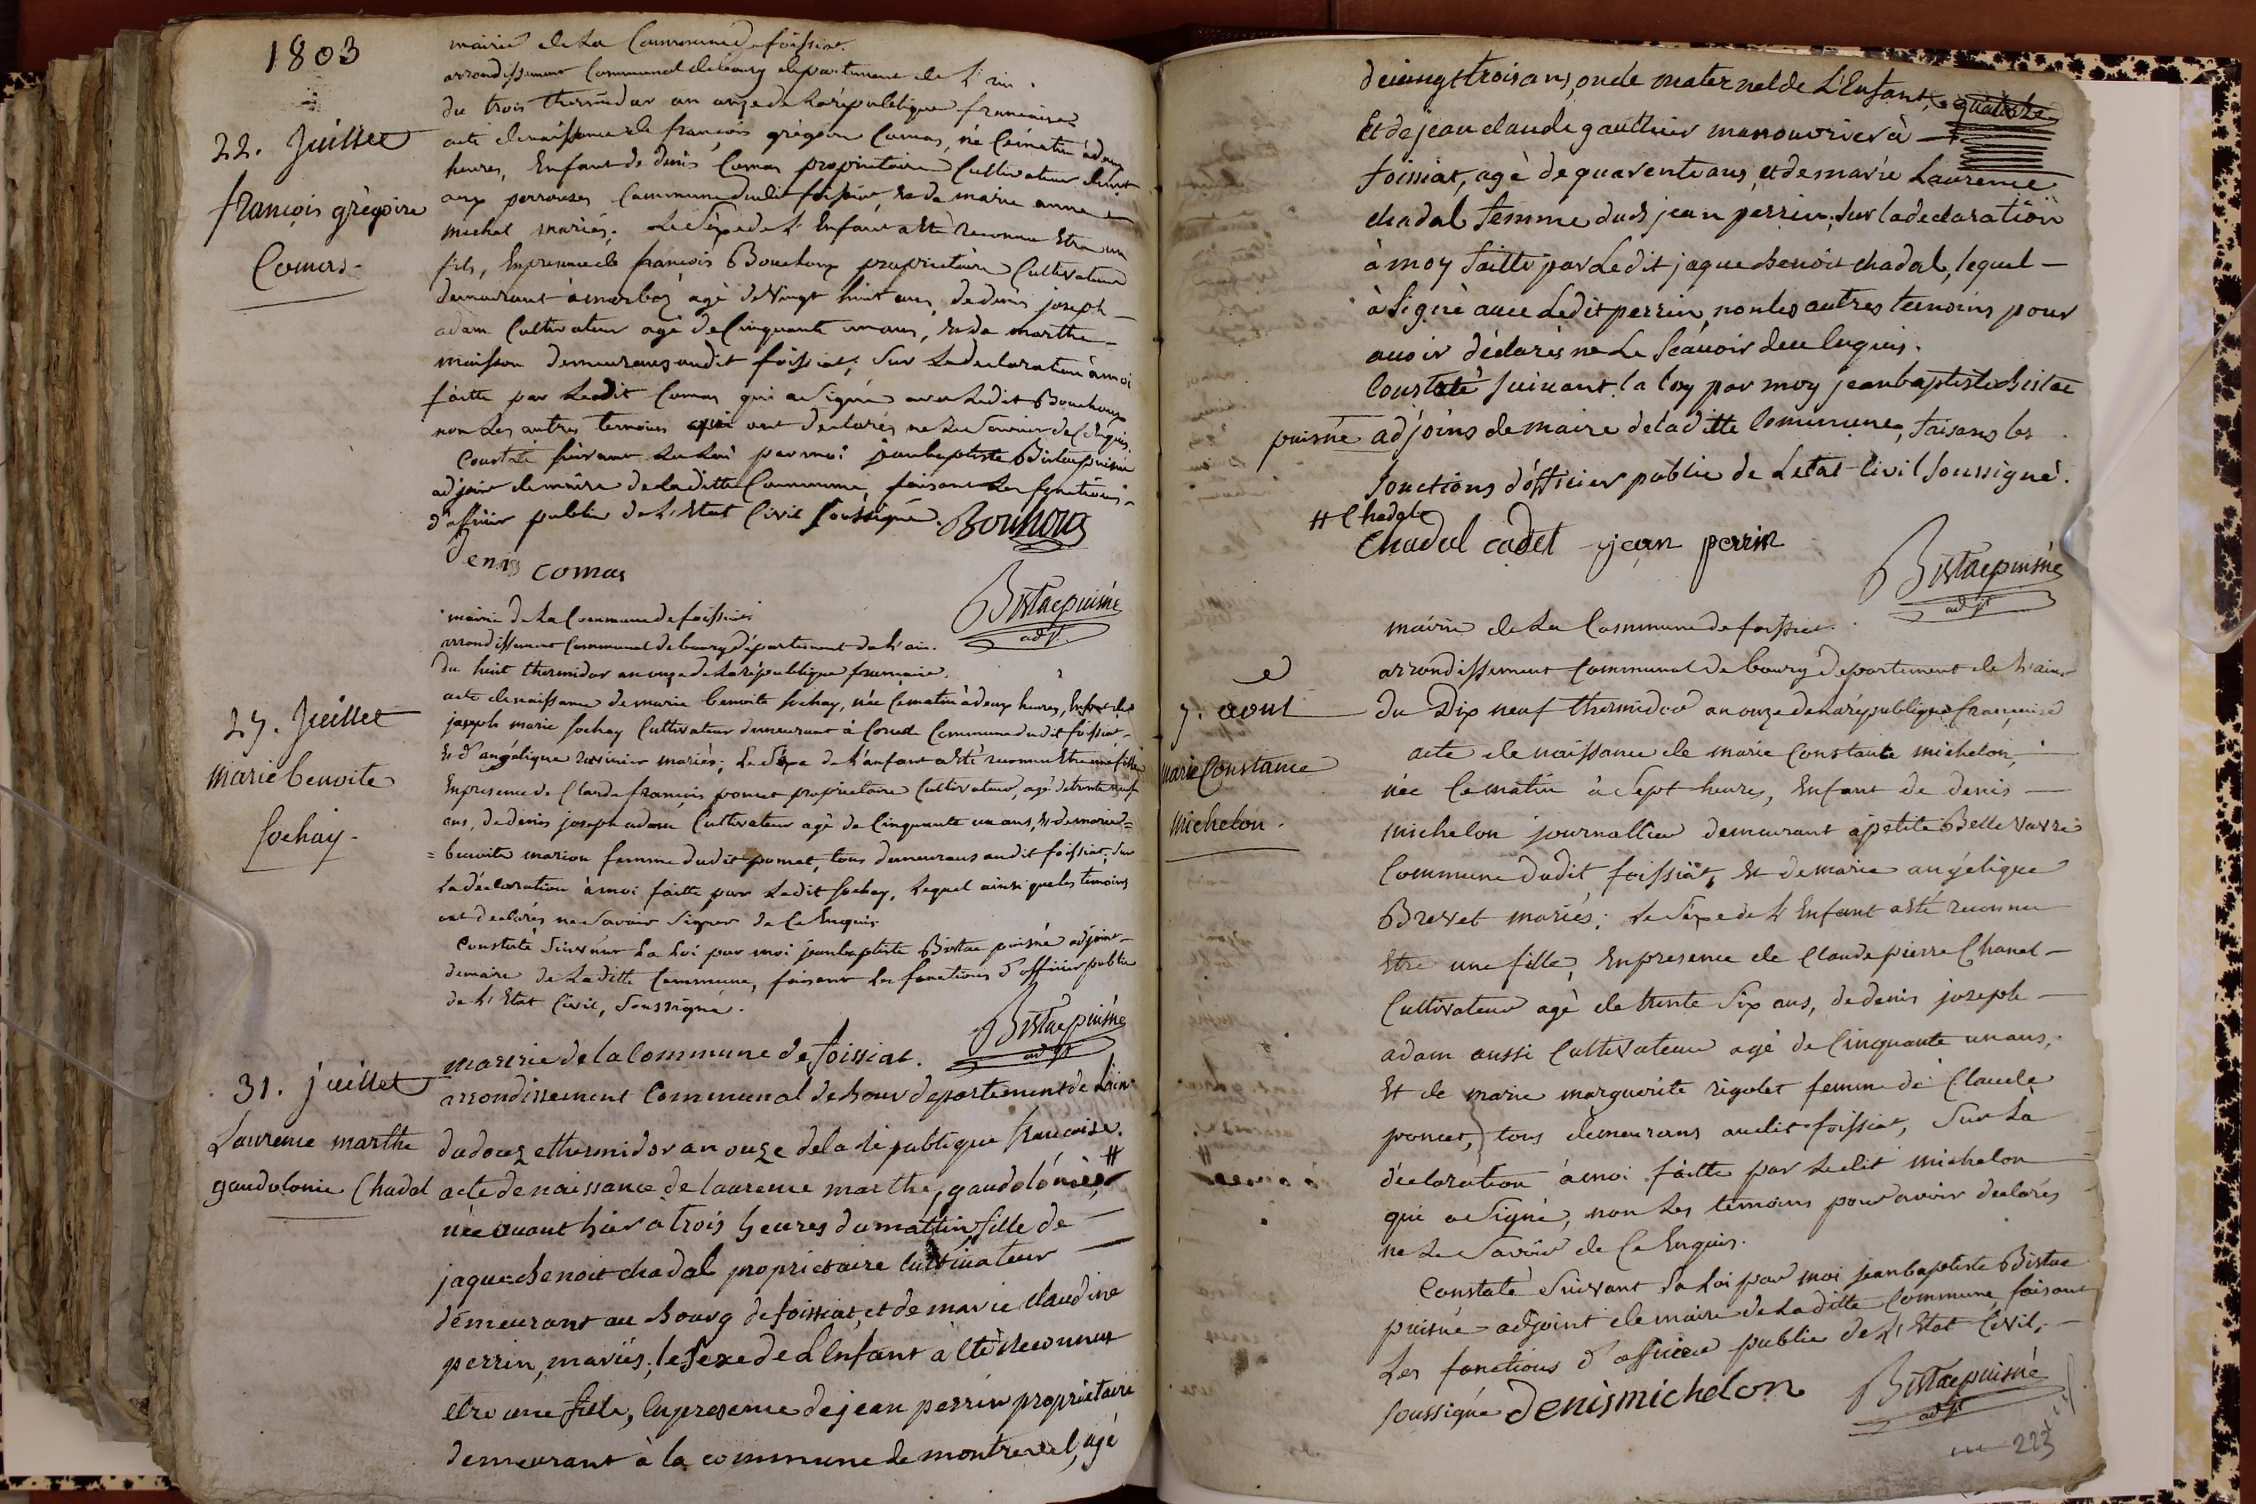 1803
mairie de La Commune de foissiat.
arrondissement Communal de bourg departement de L'ain.
du trois thermidor an onze de La republique francaise
22. Juillet
françois grégoire
Comas
acte de naissance de françois grégoire Comas, né Ce matin à deux
heures, Enfant de denis Comas proprietaire Cultivateur
aux perrouses Commune dudit foissiat, et de marie anne
michel mariés; Le Sexe de L'Enfant a été reconnu Etre un
fils, En presence de françois Bouchoux proprietaire Cultivateur
demeurant à marboz agé de Vingt huit ans, de denis joseph
adam Cultivateur agé de Cinquante un ans, et de marthe
maisson demeurans audit foissiat; Sur La declaration à moi
faitte par Ledit Comas qui a Signé avec Ledit Bouchoux
non Les autres temoins qui ont declarés ne Le Savoir de Ce Enquis
Constaté suivant La Loi par moi jean baptiste Bistac puisné
adjoint de maire de La ditte Commune, faisant Les fonctions
d'officier public de L'Etat Civil Soussigné.
Denis comas
Bistac puisné
adjt
mairie de La Commune de foissiat
arrondissement Communal de bourg département de L'ain.
du huit thermidor an onze de La république francaise.
27. Juillet
marie benoite
Sochay
acte de naissance de marie benoite Sochay, née Ce matin à deux heures, Enfant de
joseph marie Sochay Cultivateur demeurant à Commune dudit foissiat
Et d'angélique mariés; Le Sexe de L'enfant a été reconnu Etre une fille
En presence de Claude françois poncet proprietaire Cultivateur, agé de trente neuf
ans, de denis joseph adam Cultivateur agé de Cinquante un ans, Et de marie
= benoite marion femme dudit poncet, tous demeurans audit foissiat; Sur
La déclaration à moi faitte par Ledit Sochay, Lequel ainsi que les temoins
ont declarés ne Savoir Signer de Ce Enquis
Constaté Suivant La Loi par moi jean baptiste Bistac puisné adjoint
de maire de La ditte Commune, faisant Les fonctions d'officier public
de L'Etat Civil, Soussigné.
Bistac puisné
adjt
31. juillet
Laurence marthe
gaudelonie Chadal
mairie de la Commune de foissiat.
arrondissement Communal de bour departement de L'ain
du douze thermidor an onze de la république francaise.
acte de naissance de laurence marthe, gaudelónie #
née avant hier a trois heures du mattin, fille de
jaque benoit chadal proprietaire cultivateur
démeurant au bourg de foissiat, et de marie claudine
perrin, mariés; le sexe de L'Enfant a été reconnut
etre une fille, En presence de jean perrin propriétaire
demeurant à la commune de montrevel, agé
de vingt trois ans, oncle maternel de L'Enfant,
Et de jean claude gauthier manouvrier à
foissiat, agé de quarente ans, et de marie Laurence
chadal femme dud jean perrin, sur la declaration
à moy faitte par Ledit jaque benoit chadal, lequel
à signé avec Ledit perrin, non les autres temoins pour
avoir déclarés ne Le sçavoir de ce enquis.
Constaté suivant la loy par moy jean baptiste bistac
puisné adjoins de maire de la ditte Commune, faisans les
fonctions d'officier public de Letat Civil soussigné.
# Chadal
Chadal cadet jean perrin
Bistac puisné
adjt
mairie de La Commune de foissiat.
arrondissement Communal de bourg département de L'ain
du Dix neuf thermidor an onze de La république française
7. aout
marie Constance
michelon.
acte de naissance de marie Constante michelon,
née Ce matin à Sept heures, Enfant de denis
michelon journallier demeurant à petite Belle vavre
Commune dudit foissiat, Et de marie angélique
Brevet mariés; Le Sexe de L'Enfant a été reconnu
Etre une fille, En presence de Claude pierre Chanel
Cultivateur agé de trente Six ans, de denis joseph
adam aussi Cultivateur agé de Cinquante un ans,
Et de marie marguerite rigolet femme de Claude
poncet, tous demeurans audit foissiat, Sur La
déclaration à moi faitte par Ledit michelon
qui a Signé, non Les temoins pour avoir declarés
ne Le Savoir de Ce Enquis.
Constaté Suivant La Loi par moi jean baptiste Bistac
puisné adjoint de maire de La ditte Commune faisant
Les fonctions d'officier public de L'Etat Civil,
Soussigné Denis michelon
Bistac puisné
adjt
223